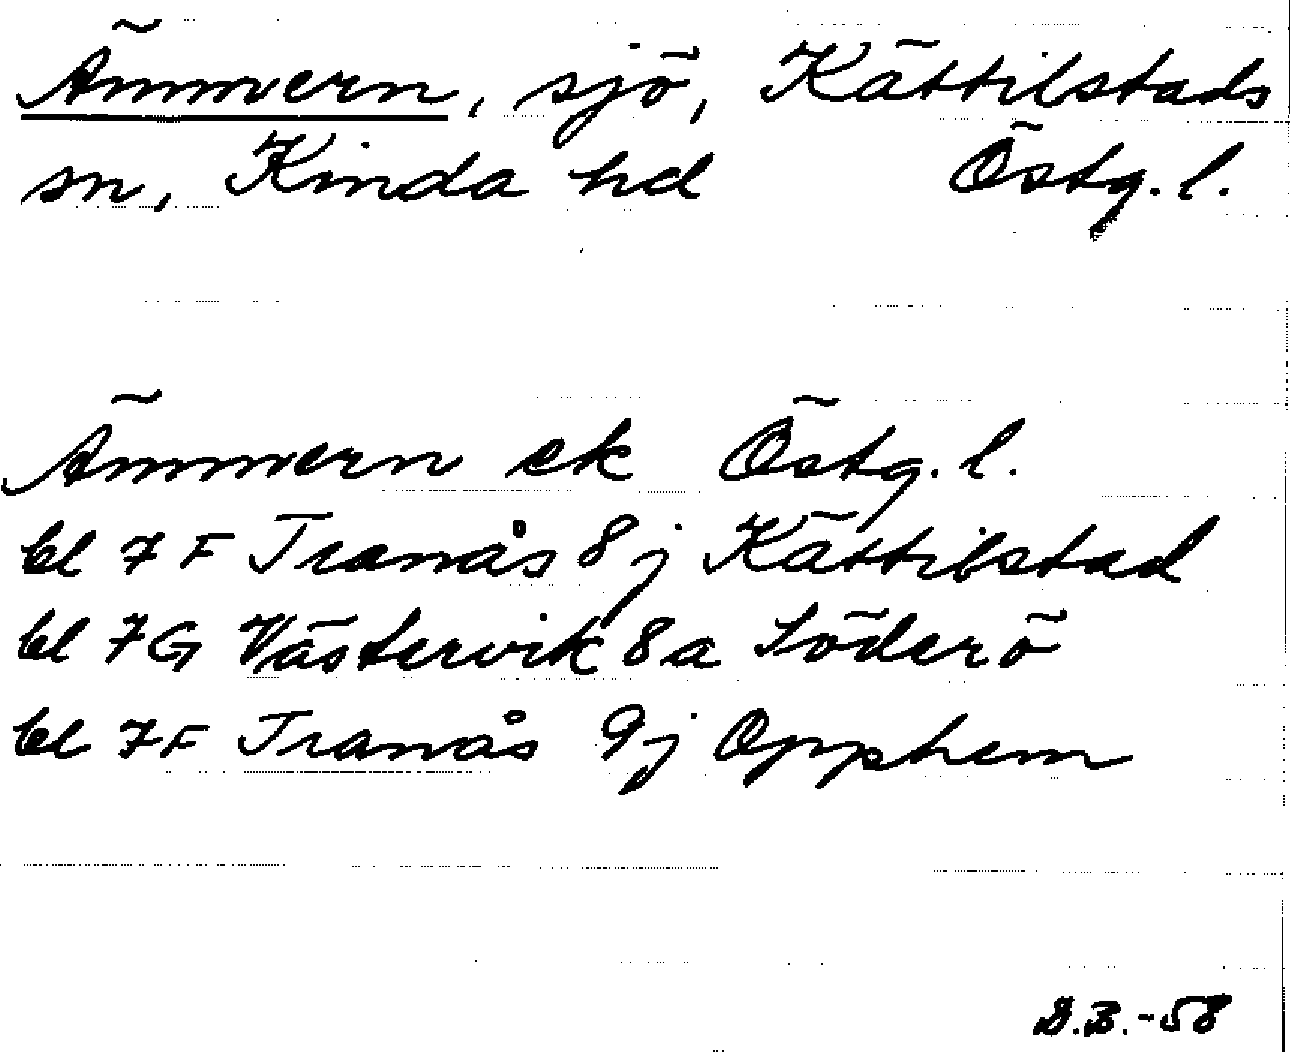 Ämmern, sjö, Kättilstads
sn, Kinda hd Östg. l.
Ämmern ek Östg. l.
bl 7 F Tranås 8j Kättilstad
bl 7G Västervik 8a Söderö
bl 7F Tranås 9j Opphem
D.B.-58